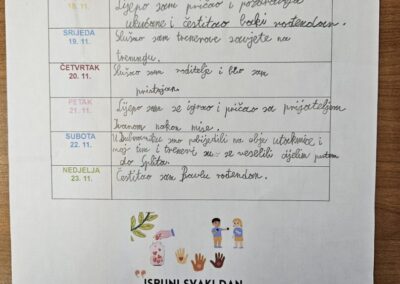 18. 11. Lijepo sam pričao i pozdravio
ukućane i čestitao baki rođendan.
SRIJEDA
19. 11.
Slušao sam trenerove savjete na
treningu.
ČETVRTAK
20. 11.
Slušao sam roditelje i bio sam
pristojan.
PETAK
21. 11.
Lijepo sam se igrao i pričao sa prijateljem
Ivanom nakon mise.
SUBOTA
22. 11.
U Dubrovniku smo pobijedili na obje utakmice i
moj tim i treneri su se veselili cijelim putem
do Splita.
NEDJELJA
23. 11.
Čestitao sam Pavlu rođendan.
ISPUNI SVAKI DAN